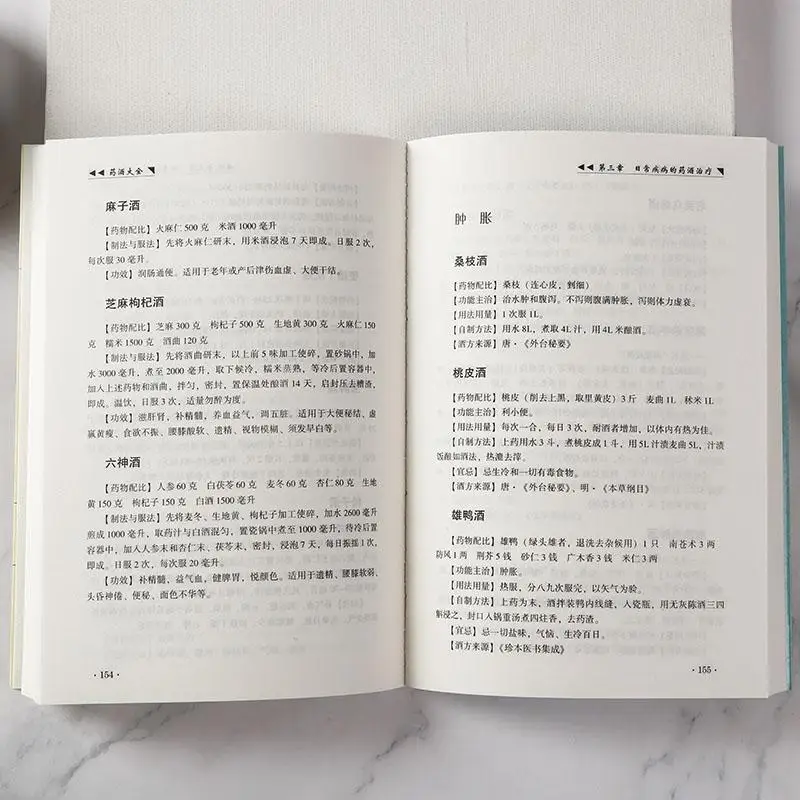 药酒大全
麻子酒
【药物配比】火麻仁 500 克 米酒 1000 毫升
【制法与服法】先将火麻仁研末，用米酒浸泡 7 天即成。日服 2 次，
每次服 30 毫升。
【功效】润肠通便。适用于老年或产后津伤血虚、大便干结。
芝麻枸杞酒
【药物配比】芝麻 300 克 枸杞子 500 克 生地黄 300 克 火麻仁 150
克 糯米 1500 克 酒曲 120 克
【制法与服法】先将酒曲研末，以上前 5 味加工使碎，置砂锅中，加
水 3000 毫升，煮至 2000 毫升，取下候冷，糯米蒸熟，等冷后置容器中，
加入上述药物和酒曲，拌匀，密封，置保温处酿酒 14 天，启封压去糟渣，
即成。温饮，日服 3 次，适量勿醉为度。
【功效】滋肝肾，补精髓，养血益气，调五脏。适用于大便秘结、虚
羸黄瘦、食欲不振、腰膝酸软、遗精、视物模糊、须发早白等。
六神酒
【药物配比】人参 60 克 白茯苓 60 克 麦冬 60 克 杏仁 80 克 生地
黄 150 克 枸杞子 150 克 白酒 1500 毫升
【制法与服法】先将麦冬、生地黄、枸杞子加工使碎，加水 2600 毫升
煎成 1000 毫升，取药汁与白酒混匀，置瓷锅中煮至 1000 毫升，待冷后置
容器中，加入人参末和杏仁末、茯苓末，密封，浸泡 7 天，每日振摇 1 次，
即成。日服 2 次，每次服 20 毫升。
【功效】补精髓，益气血，健脾胃，悦颜色。适用于遗精、腰膝软弱、
头昏神倦、便秘、面色不华等。
·154·
第三章 日常疾病的药酒治疗
肿 胀
桑枝酒
【药物配比】桑枝（连心皮，剉细）
【功能主治】治水肿和腹泻。不泻则腹满肿胀，泻则体力虚衰。
【用法用量】1 次服 1L。
【自制方法】用水 8L，煮取 4L 汁，用 4L 米酿酒。
【酒方来源】唐·《外台秘要》
桃皮酒
【药物配比】桃皮（削去上黑，取里黄皮）3 斤 麦曲 1L 秫米 1L
【功能主治】利小便。
【用法用量】每次一合，每日 3 次，耐酒者增加，以体内有热为佳。
【自制方法】上药用水 3 斗，煮桃皮成 1 斗，用 5L 汁渍麦曲 5L，汁渍
饭酿如酒法，热漉去滓。
【宜忌】忌生冷和一切有毒食物。
【酒方来源】唐·《外台秘要》、明·《本草纲目》
雄鸭酒
【药物配比】雄鸭（绿头雄者，退洗去杂候用）1 只 南苍术 3 两
防风 1 两 荆芥 5 钱 砂仁 3 钱 广木香 3 钱 米仁 3 两
【功能主治】肿胀。
【用法用量】热服，分八九次服完，以矢气为验。
【自制方法】上药为末，酒拌装鸭内线缝，入瓷瓶，用无灰陈酒三四
斛浸之，封口入锅重汤煮四炷香，去药渣。
【宜忌】忌一切盐味，气恼、生冷百日。
【酒方来源】《珍本医书集成》
·155·